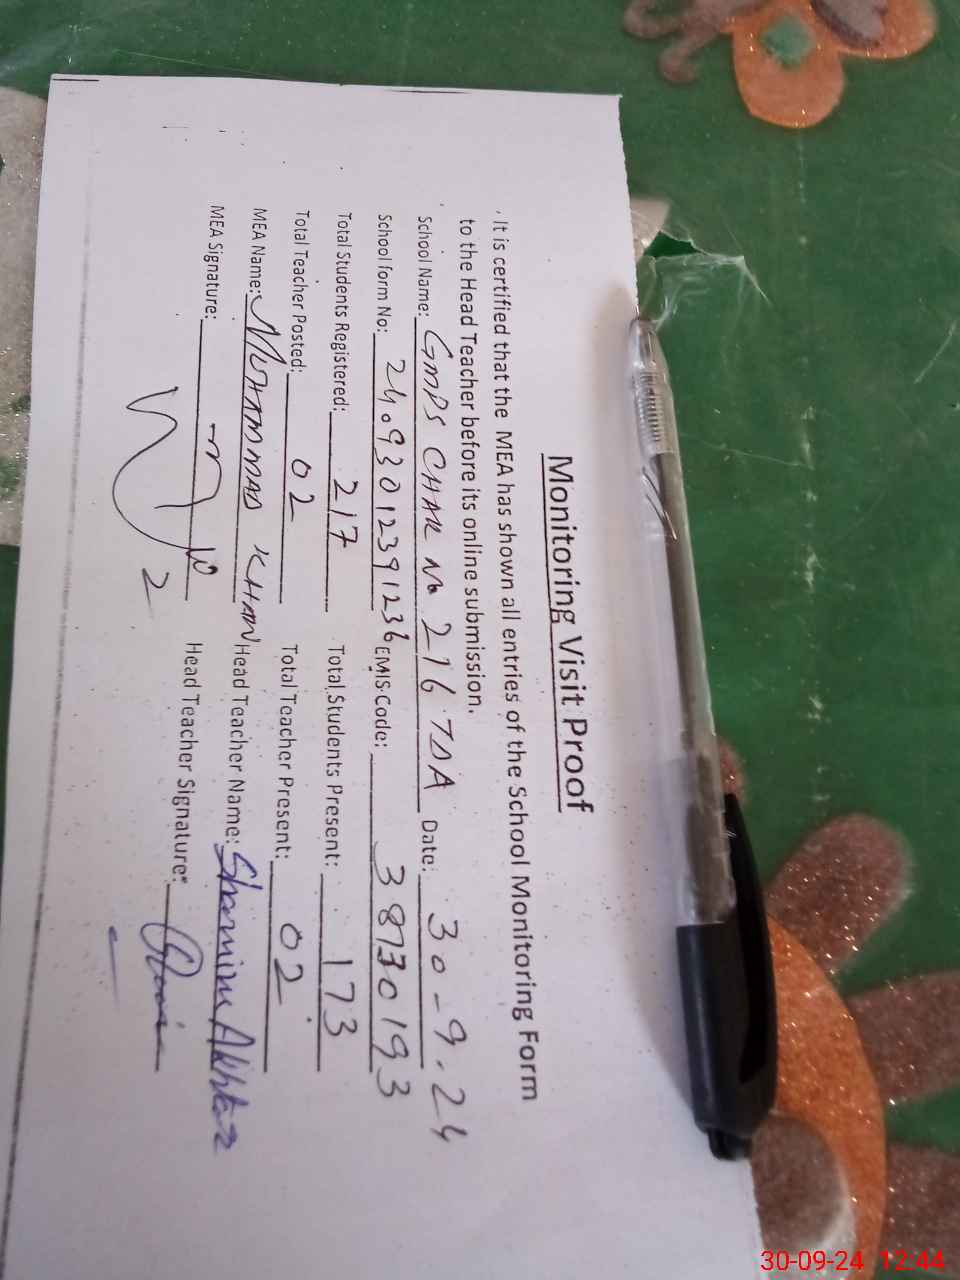 Monitoring Visit Proof
It is certified that the MEA has shown all entries of the School Monitoring Form
to the Head Teacher before its online submission.
School Name: GMPS CHAK No 216 TDA Date: 30-9.24
School form No: 2409301239 1236 EMIS Code: 38730193
Total Students Registered: 217 Total Students Present: 173
Total Teacher Posted: 02 Total Teacher Present: 02
MEA Name: MUHAMMAD KHAN Head Teacher Name: Shamim Akhtar
MEA Signature: Head Teacher Signature:
30-09-24 12:44